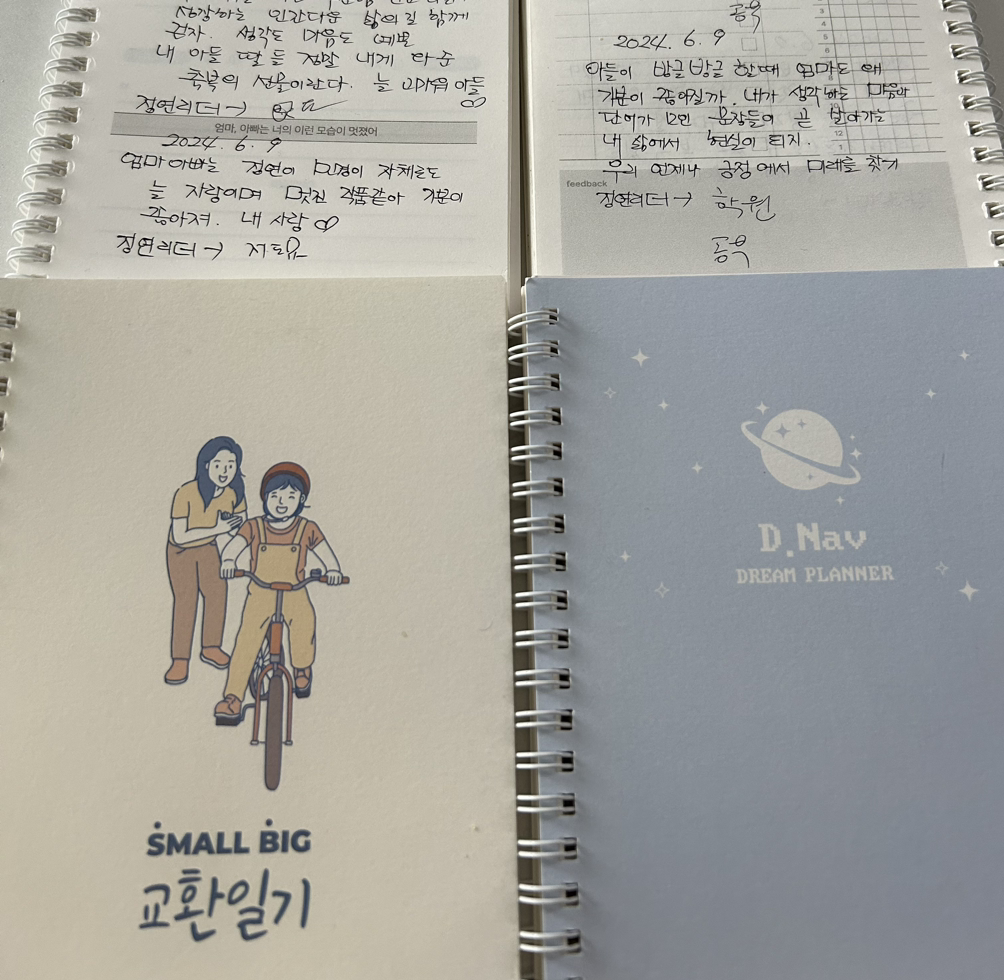 생각하는 인간다운 삶의 길 함께
걷자. 생각도 마음도 예쁜
내 아들 딸들 정말 내게 와준
축복의 선물이란다. 늘 고마워 아들
정연리더→
엄마, 아빠는 너의 이런 모습이 멋졌어
2024. 6. 9
엄마아빠는 정연이 민경이 자체로도
늘 자랑이며 멋진 작품같아 기분이
좋아져. 내 사랑♡
정연리더→
공육
2024. 6. 9
아들이 방글방글 할때 엄마도 왜
기분이 좋아질까. 내가 생각하는 마음과
단어가 모인 문장들이 곧 살아가는
내 삶에서 현실이 되지.
우리 언제나 긍정에서 미래를 찾기
feedback
정연리더→ 학원
공육
SMALL BIG
교환일기
D.Nav
DREAM PLANNER